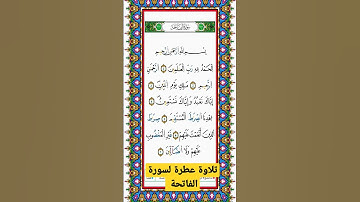 بِسْمِ اللَّهِ الرَّحْمَٰنِ الرَّحِيمِ
الْحَمْدُ لِلَّهِ رَبِّ الْعَالَمِينَ ۝ الرَّحْمَٰنِ
الرَّحِيمِ ۝ مَالِكِ يَوْمِ الدِّينِ ۝
إِيَّاكَ نَعْبُدُ وَإِيَّاكَ نَسْتَعِينُ ۝
اهْدِنَا الصِّرَاطَ الْمُسْتَقِيمَ ۝ صِرَاطَ
الَّذِينَ أَنْعَمْتَ عَلَيْهِمْ غَيْرِ الْمَغْضُوبِ
عَلَيْهِمْ وَلَا الضَّالِّينَ ۝
تلاوة عطرة لسورة
الفاتحة